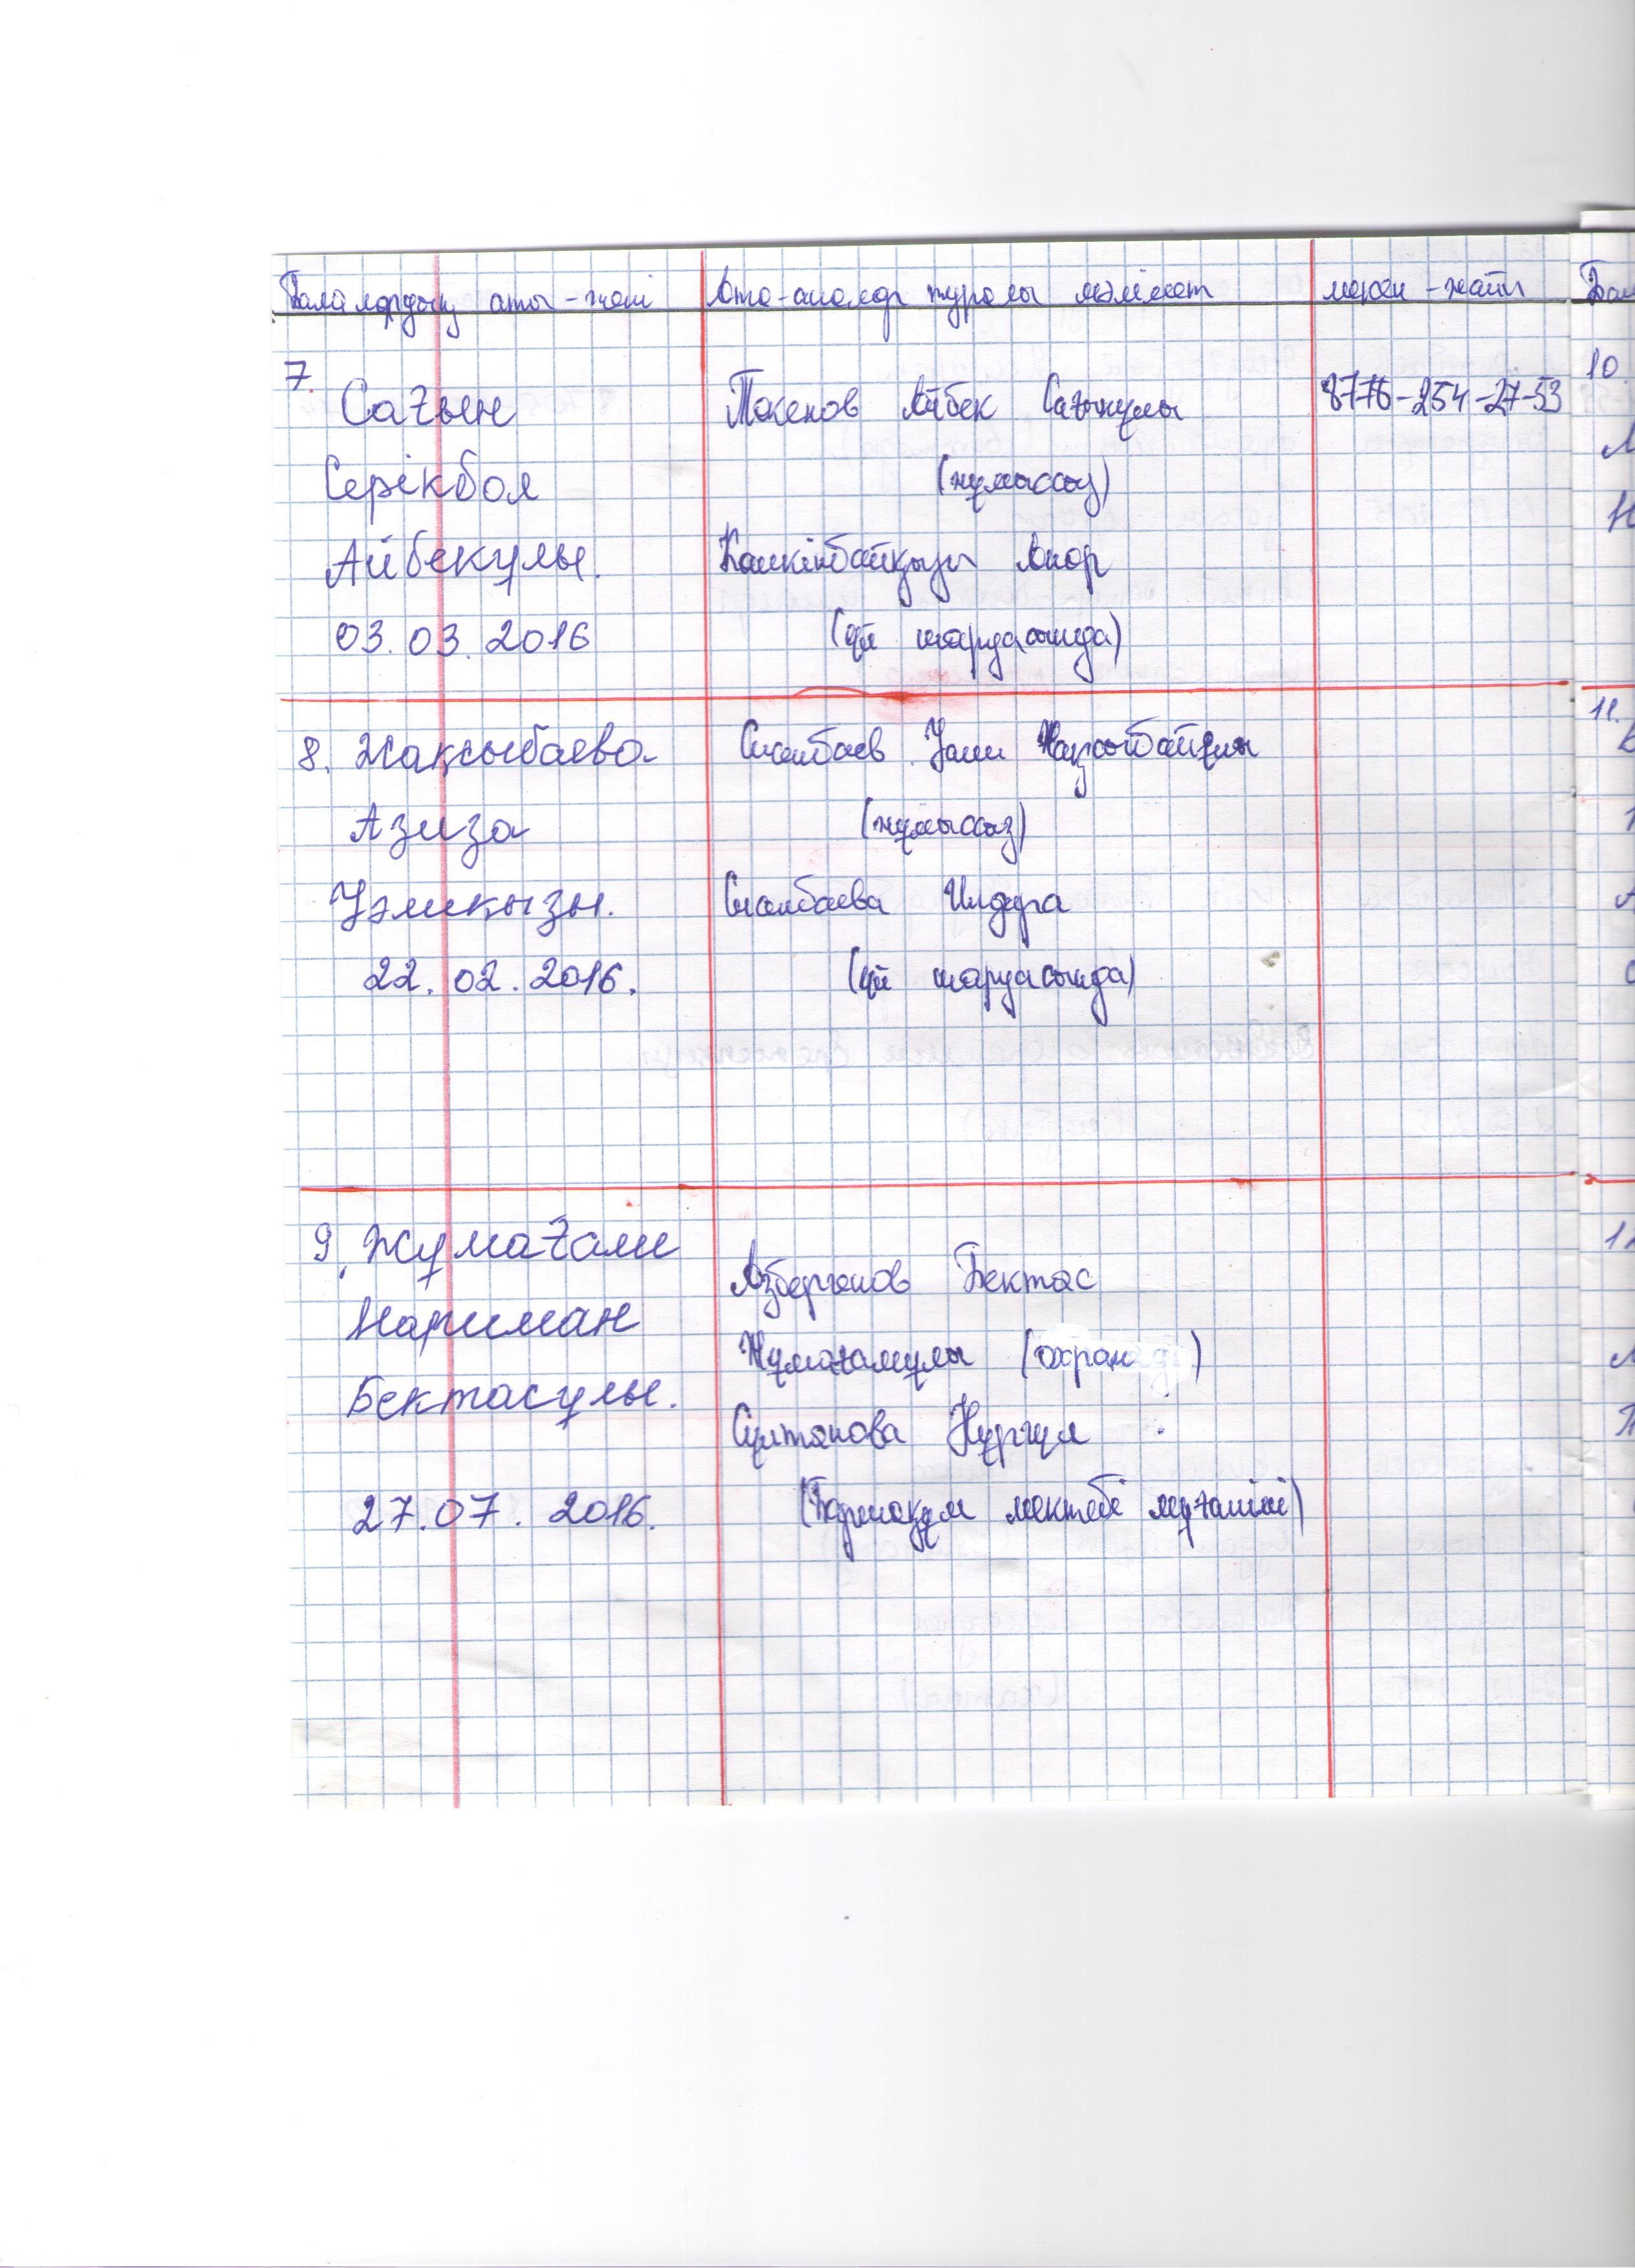 Балалардың аты-жөні Ата-аналар туралы мәлімет мекен-жайы
7. Сағын Төкенов Айбек Сағынұлы 8776-254-27-53
Серікбол (жұмыссыз)
Айбекұлы. Көшкінбайқызы Анар
03.03.2016 (үй шаруасында)
8. Жақсыбаева Сманбаев Уәли Жақсыбайұлы
Азиза (жұмыссыз)
Уәлиқызы. Сманбаева Индира
22.02.2016. (үй шаруасында)
9. Жұмағали
Азбергенов Бектас
Нариман
Жұмағалиұлы (охранада)
Бектасұлы.
Султанова Нұргүл
27.07.2016. (Бармақұм мектебі мұғалімі)
10.
11.